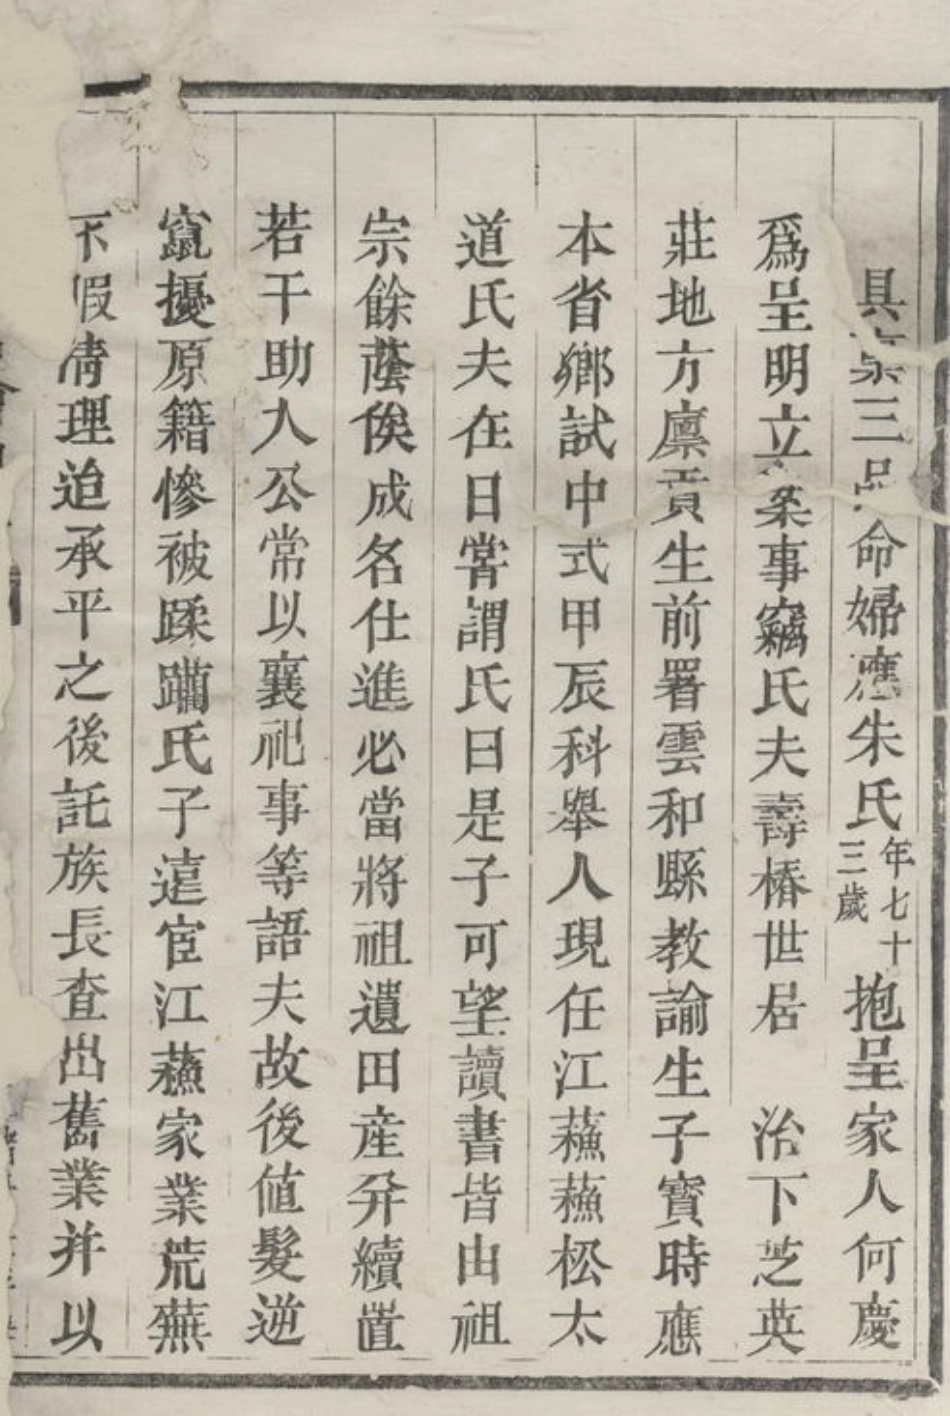 具稟三品命婦應朱氏年七十三歲抱呈家人何慶
爲呈明立案事竊氏夫壽椿世居　治下芝英
莊地方廪貢生前署雲和縣教諭生子寳時應
本省鄉試中式甲辰科舉人現任江蘓蘓松太
道氏夫在日甞謂氏曰是子可望讀書皆由祖
宗餘蔭俟成名仕進必當將祖遺田産分續置
若干助入公常以襄祀事等語夫故後値髮逆
竄擾原籍慘被蹂躪氏子遠宦江蘓家業荒蕪
不暇淸理迨承平之後託族長查出舊業并以